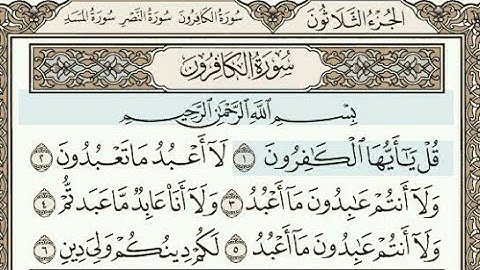 الجزء الثلاثون سورة الكافرون سورة النصر سورة المسد
سورة الكافرون
بِسْمِ اللَّهِ الرَّحْمَٰنِ الرَّحِيمِ
قُلْ يَٰٓأَيُّهَا ٱلْكَٰفِرُونَ ١ لَآ أَعْبُدُ مَا تَعْبُدُونَ ٢
وَلَآ أَنتُمْ عَٰبِدُونَ مَآ أَعْبُدُ ٣ وَلَآ أَنَا۠ عَابِدٌ مَّا عَبَدتُّمْ ٤
وَلَآ أَنتُمْ عَٰبِدُونَ مَآ أَعْبُدُ ٥ لَكُمْ دِينُكُمْ وَلِىَ دِينِ ٦